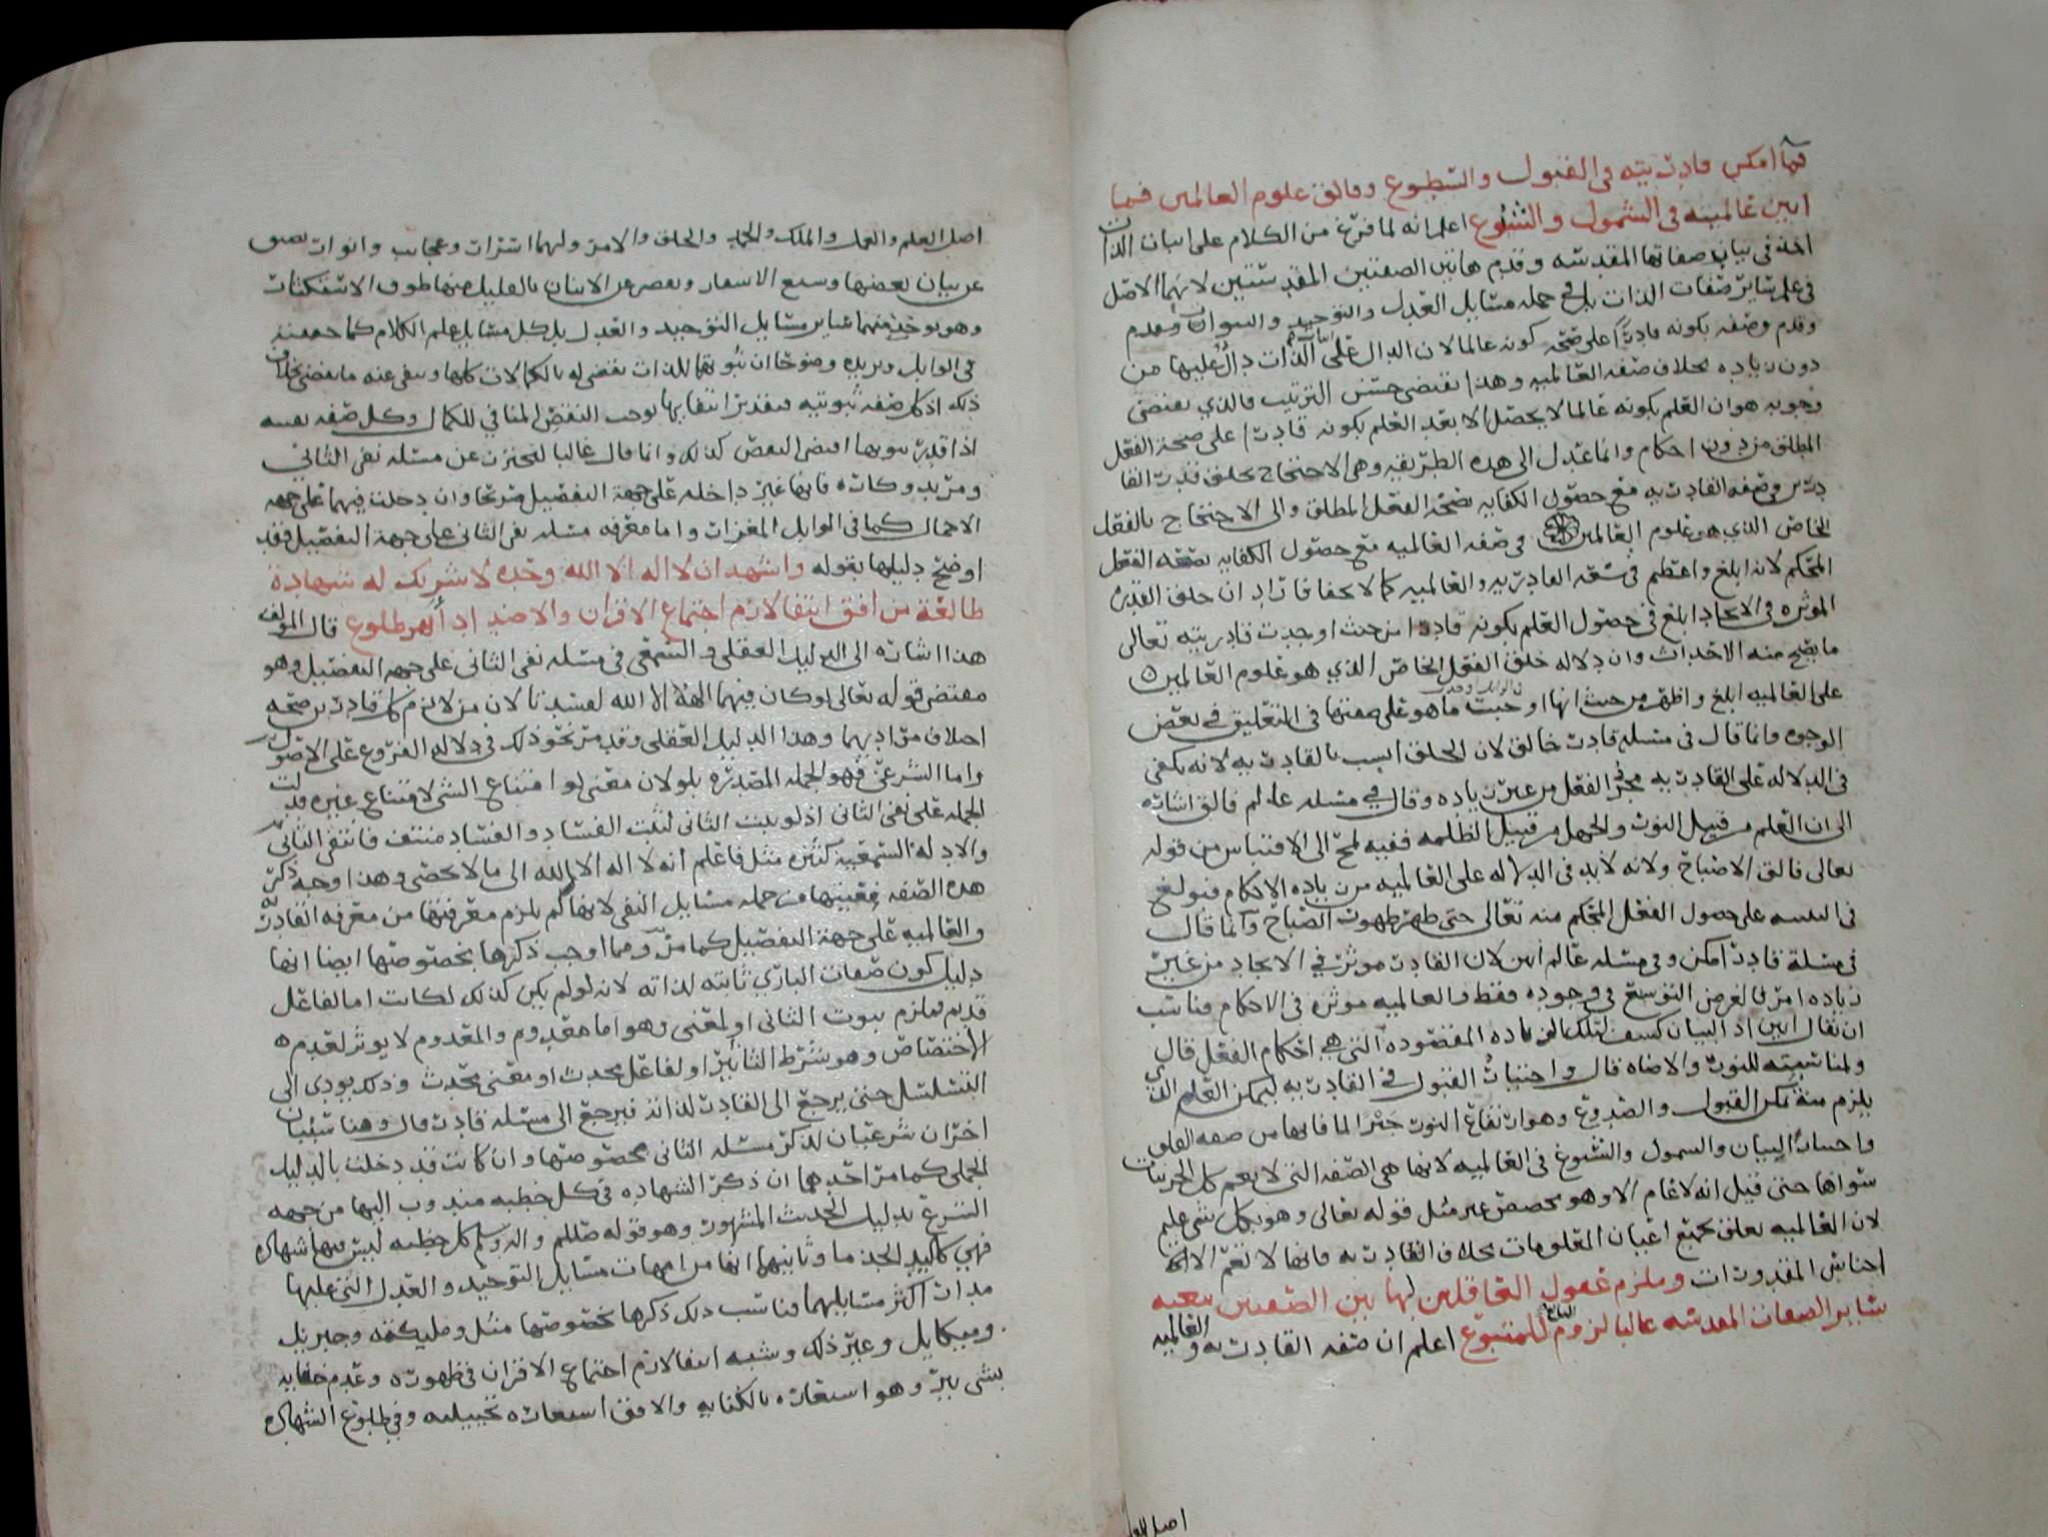 فما امكن قادريته في القبول والسطوع وفالق علوم العالمين فما
ابين عالميته في الشمول والشيوع اعلم انه لما فرغ من الكلام على اثبات الذات
اخذ في بيان صفاتها المقدسه وقدم هاتين الصفتين المقدستين لانهما الاصل
في علم سائر صفات الذات بل في جمله مسايل العدل والتوحيد والنبوات
وقدم وصفه بكونه قادرا على صحه كونه عالما لان الدال على الذات دال عليها من
دون زياده بخلاف صفه العالميه وهذا يقتضي حسن الترتيب والذي يقتضي
وجوبه هو ان العلم بكونه عالما لا يحصل الا بعد العلم بكونه قادرا على صحة الفعل
المطلق من دون احكام وانما عدل الى هذه الطريقه وهي الاحتجاج بخلق قدرت القا
درين في صفه القادريه مع حصول الكفايه بصحة الفعل المطلق والى الاحتجاج بالفعل
الخاص الذي هو علوم العالمين في صفه العالميه مع حصول الكفايه بصحه الفعل
المحكم لانه ابلغ واعظم في سعه القادريه والعالميه كما لا يخفا فاراد ان خلق القدره
الموثره في الايجاد ابلغ في حصول العلم بكونه قادرا من حيث اوجدت قادريته تعالى
ما يصح منه الاحداث وان دلاله خلق الفعل الخاص الذي هو علوم العالمين
على العالميه ابلغ واظهر من حيث انها اوجبت ما هو على صفتها في التعليق في بعض
الوجوه وانما قال في مسله قادر خالق لان الخلق انسب بالقادريه لانه يكفي
في الدلاله على القادريه مجرد الفعل من غير زياده وقال في مسله عالم فالق اشاره
الى ان العلم من قبيل النور والجهل من قبيل الظلمه ففيه لمح الى الاقتباس من قوله
تعالى فالق الاصباح ولانه لابد في الدلاله على العالميه من زياده الاحكام فبولغ
في التنبيه على حصول الفعل المحكم منه تعالى حتى ظهر ظهور الصباح وانما قال
في مسلة قادر امكن وفي مسله عالم ابين لان القادر موثر في الايجاد من غير
زياده امر فالغرض التوسع في وجوده فقط والعالميه موثره في الاحكام فناسب
ان يقال ابين اذ البيان كشف لتلك الزياده المقصوده التي هي احكام الفعل قال
ولمناسبته للنور والاضاه قال واختيار القبول في القادريه ليمكن العلم الذي
يلزم منه تمكن القبول والصدوع وهو ارتفاع النور
واختيار البيان والشمول والشيوع في العالميه لانها هي الصفه التي لا يعم كل الجزييات
سواها حتى قيل انه لا عام الا وهو مخصص غير مثل قوله تعالى وهو بكل شي عليم
لان العالميه تعلق بجميع اعيان المعلومات بخلاف القادريه فانها لا تعم الا
اجناس المقدورات وملزم غفول الغافلين لها بين الصفتين تبعيه
ساير الصفات المقدسه غالبا لزوم التابع للمتبوع اعلم ان صفه القادريه والعالميه
اصل العلم والعمل والملك والحمد والخلق والامر ولهما اسرارات وعجايب وانوار تضيق
عن بيان بعضها وسع الاسفار
وهو يوخذ منهما ساير مسايل التوحيد والعدل بل كل مسايل علم الكلام كما حققته
في الوابل ويزيده وضوحا ان ثبوتهما للذات يقضى له بالكمالات كلها وينفى عنه ما يقضى بخلاف
ذلك اذ كل صفه ثبوتيه فتقدير انتفايها يوجب النقص المنافي للكمال وكل صفه نفسيه
اذا قدر ثبوتها اقتضى النقص كذلك وانما قال غالبا ليحترز عن مسئله نفى الثاني
ومريد وكاره فانها غير داخله على جهة التفصيل صريحا وان دخلت فيهما على جهه
الاجمال كما في الوابل المغزار واما معرفه مسئله نفى الثاني على جهة التفصيل فقد
اوضح دليلها بقوله واشهد ان لا اله الا الله وحده لا شريك له شهادة
طالعة من افق انتفا لازم اجتماع الاقران والاضداد اظهر طلوع قال المولف
هذا اشاره الى الدليل العقلي والسمعي في مسئله نفى الثاني على جهه التفصيل وهو
مقتضى قوله تعالى لو كان فيهما الهة الا الله لفسدتا لان من لازم كل قادرين صحه
اختلاف مراديهما وهذا الدليل العقلي وقد مر نحو ذلك في دلاله الفروع على الاصول
واما الشرعي فهو الجمله المصدره بلو لان معنى لو امتناع الشي لامتناع غيره فدلت
الجمله على نفى الثاني اذ لو ثبت الثاني لثبت الفساد والفساد منتف فانتفى الثاني
والادله السمعيه كثيره مثل فاعلم انه لا اله الا الله الى ما لا يحصى وهذا وجه ذكر
هذه الصفه بعينها من جمله مسايل النفى لانها لم يلزم معرفتها من معرفه القادريه
والعالميه على جهة التفصيل كما مر ومما اوجب ذكرها بخصوصها ايضا انها
دليل كون صفات الباري ثابته لذاته لانه لو لم يكن كذلك لكانت اما لفاعل
قديم فيلزم ثبوت الثاني او لمعنى وهو اما معدوم والمعدوم لا يوثر لعدم
الاختصاص وهو شرط التاثير او لفاعل محدث او معنى محدث وذلك يودي الى
التسلسل حتى يرجع الى القادر لذاته فيرجع الى مسئله قادر قال وهنا سببان
اخران شرعيان لذكر مسئله الثاني بخصوصها وان كانت قد دخلت بالدليل
الجملي كما مر احدهما ان ذكر الشهاده في كل خطبه مندوب اليها من جهه
الشرع بدليل الحديث المشهور وهو قوله صللم واله وسلم كل خطبه ليس فيها شهاده
فهي كاليد الجذما وثانيهما انها من امهات مسايل التوحيد والعدل التي عليها
مدار اكثر مسايلهما فناسب ذلك ذكرها بخصوصها مثل وملئكته وجبريل
وميكايل وغير ذلك وشبه انتفا لازم اجتماع الاقران في ظهوره وعدم خفايه
بشي نير وهو استعاره بالكنايه والافق استعاره تخييليه وفي طلوع الشهاده
اصل العلم